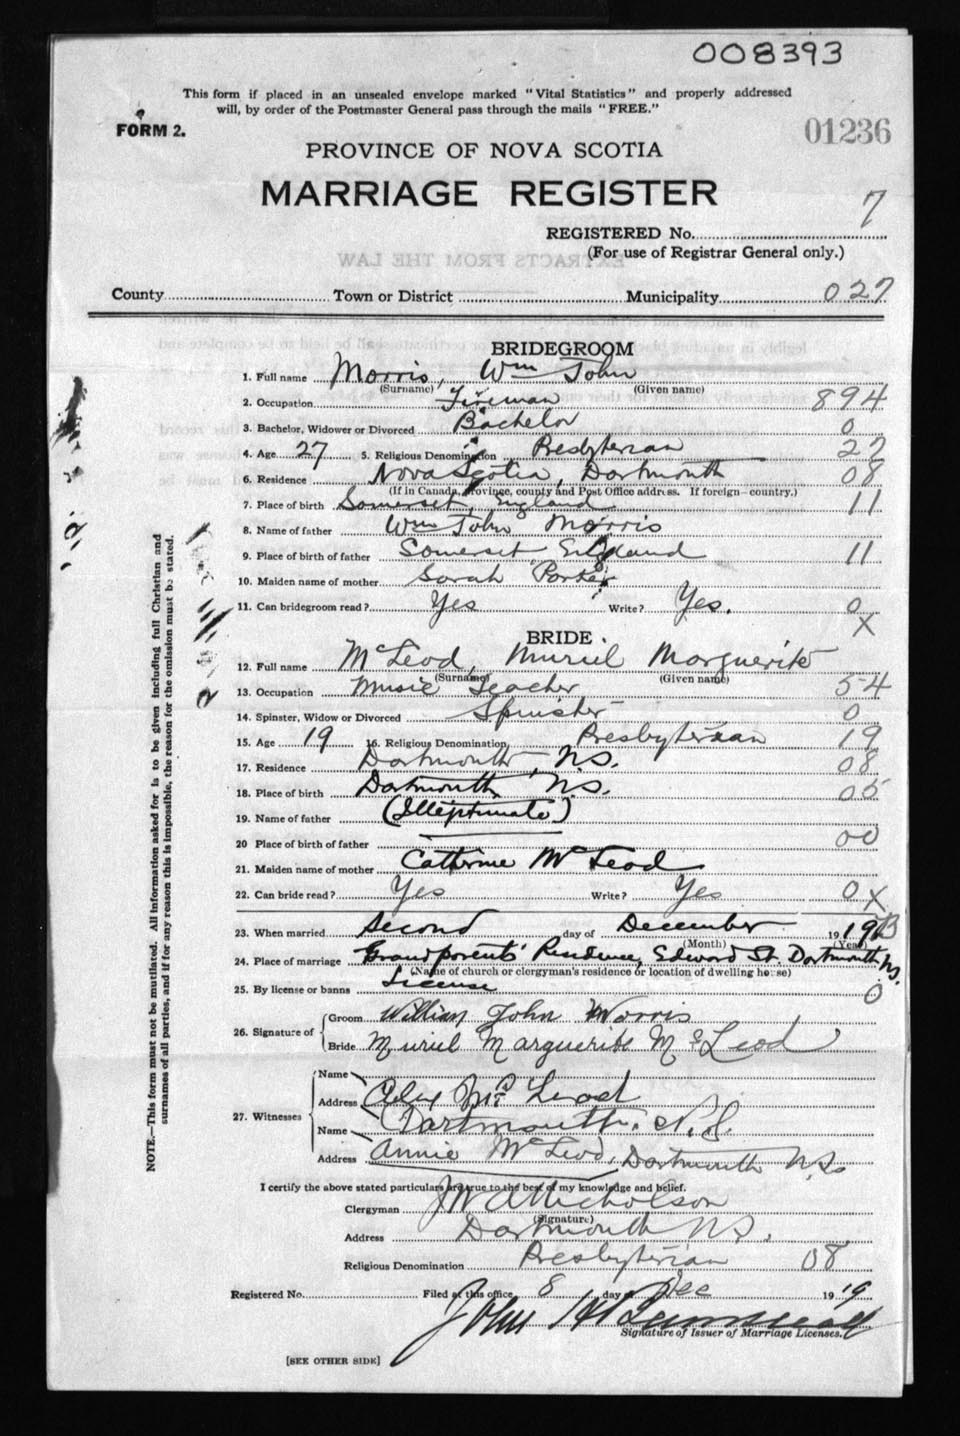 008393
This form if placed in an unsealed envelope marked "Vital Statistics" and properly addressed
will, by order of the Postmaster General pass through the mails "FREE."
FORM 2.
01236
PROVINCE OF NOVA SCOTIA
MARRIAGE REGISTER
7
REGISTERED No.
(For use of Registrar General only.)
EXTRACTS FROM THE LAW
County Town or District Municipality 027
BRIDEGROOM
1. Full name Morris, Wm John
(Surname) (Given name)
2. Occupation Fireman 894
3. Bachelor, Widower or Divorced Bachelor 0
4. Age 27 5. Religious Denomination Presbyterian 27
6. Residence Nova Scotia, Dartmouth 08
(If in Canada, province, county and Post Office address. If foreign—country.)
7. Place of birth Somerset, England 11
8. Name of father Wm John Morris
9. Place of birth of father Somerset England 11
10. Maiden name of mother Sarah Porter
11. Can bridegroom read? Yes Write? Yes. 0
X
BRIDE
12. Full name McLeod, Muriel Marguerite
(Surname) (Given name)
13. Occupation Music Teacher 54
14. Spinster, Widow or Divorced Spinster 0
15. Age 19 16. Religious Denomination Presbyterian 19
17. Residence Dartmouth N.S. 08
18. Place of birth Dartmouth N.S. 05
19. Name of father (Illegitimate)
20 Place of birth of father 00
21. Maiden name of mother Catherine McLeod
22. Can bride read? Yes Write? Yes 0 X
23. When married Second day of December 19
(Month) (Year)
24. Place of marriage Grandparents' Residence, Edward St. Dartmouth N.S.
(Name of church or clergyman's residence or location of dwelling house)
25. By license or banns License 0
26. Signature of Groom William John Morris
Bride Muriel Marguerite McLeod
27. Witnesses
Name
Address Alex McLeod
Name Dartmouth, N.S.
Address Annie McLeod, Dartmouth N.S.
I certify the above stated particulars are true to the best of my knowledge and belief.
Clergyman Nicholson
(Signature)
Address Dartmouth N.S.
Religious Denomination Presbyterian 08
Registered No. Filed at this office 8 day of Dec 1919
John
Signature of Issuer of Marriage Licenses.
[SEE OTHER SIDE]
NOTE.—This form must not be mutilated. All information asked for is to be given including full Christian and
surnames of all parties, and if for any reason this is impossible, the reason for the omission must be stated.